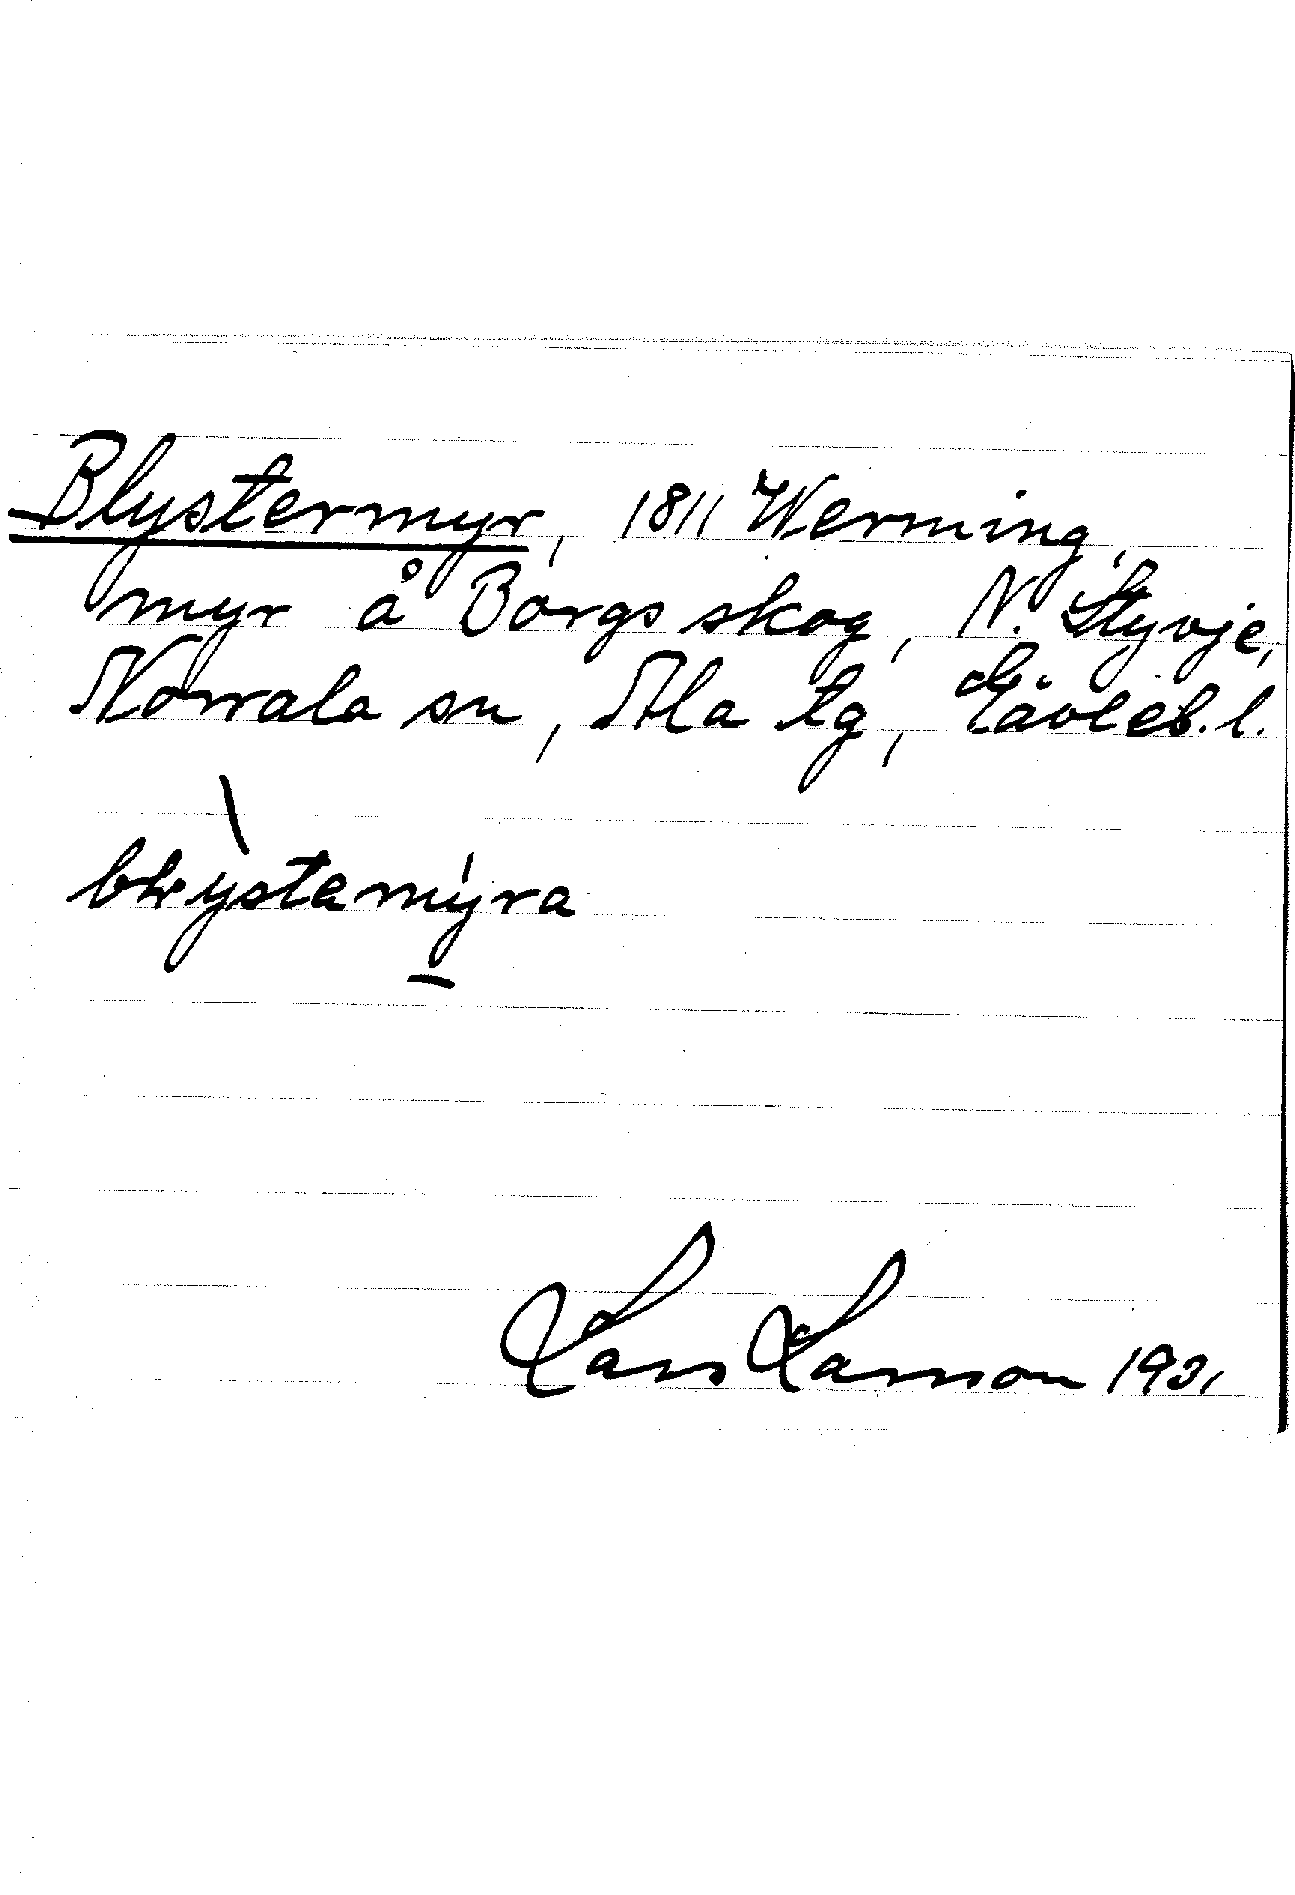 Blystermyr, 1811 Werming,
myr å Borgs skog, N. Styvje,
Norrala sn, Ala tg, Gävleb. l.
blystamýra
Lars Larsson 1931